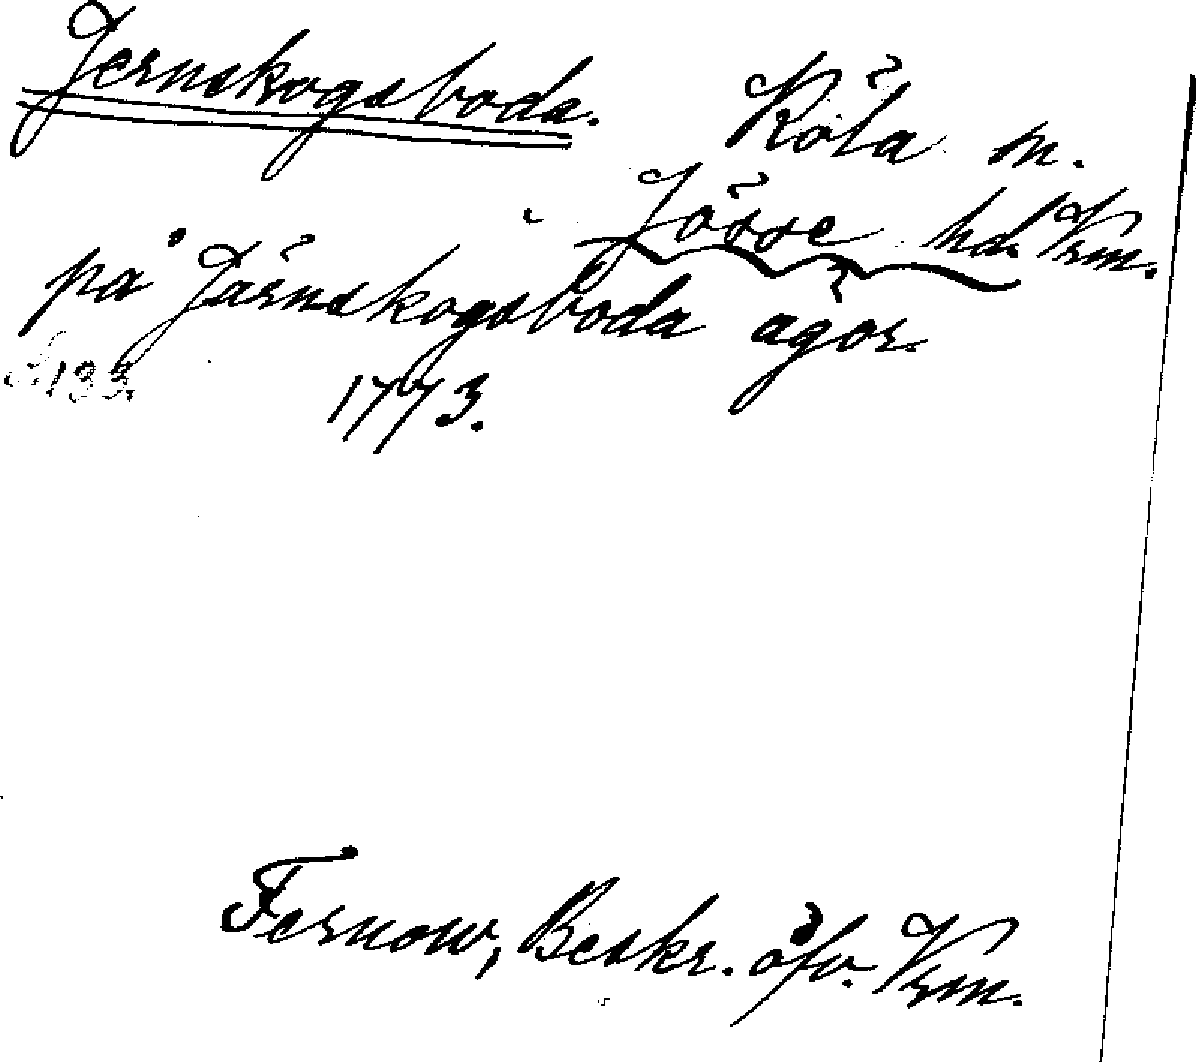 Jernskogsboda. Köla sn.
Jösse hd. Vrm.
på Järnskogsboda ägor.
S. 133. 1773.
Fernow, Beskr. öfv. Vrm.